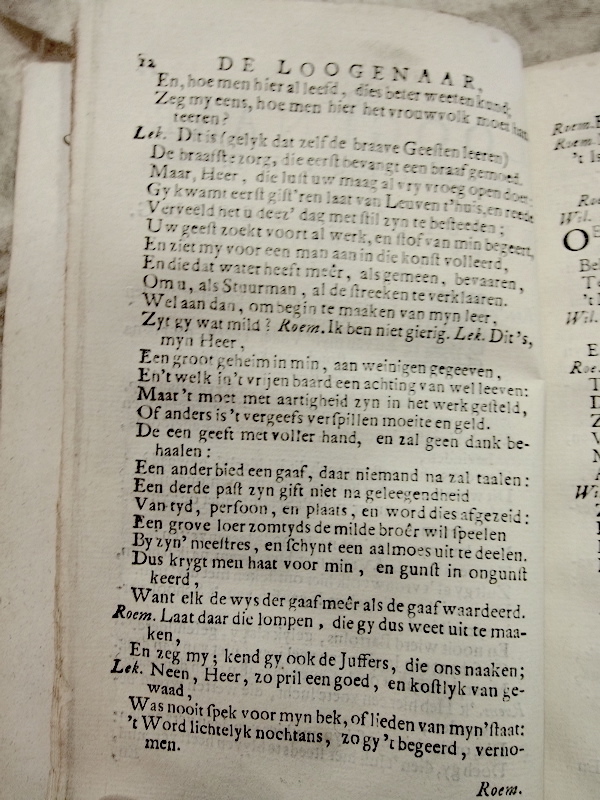 12 DE LOOGENAAR,
En, hoe men hier al leefd, dies beter weeten kund,
Zeg my eens, hoe men hier het vrouwvolk moet han
teeren?
Lek. Dit is (gelyk dat zelf de braave Geeſten leeren)
De braafſte zorg, die eerſt bevangt een braaf gemoed.
Maar, Heer, die luſt uw maag al vry vroeg open doet,
Gy kwamt eerſt giſt'ren laat van Leuven t'huis, en reede
Verveeld het u deez' dag met ſtil zyn te beſteeden;
Uw geeſt zoekt voort al werk, en ſtof van min begeert,
En ziet my voor een man aan in die konſt volleerd,
En die dat water heeft meêr, als gemeen, bevaaren,
Om u, als Stuurman, al de ſtreeken te verklaaren.
Wel aan dan, om begin te maaken van myn leer,
Zyt gy wat mild? Roem. Ik ben niet gierig. Lek. Dit's,
myn Heer,
Een groot geheim in min, aan weinigen gegeeven,
En't welk in't vrijen baard een achting van wel leeven:
Maar't moet met aartigheid zyn in het werk geſteld,
Of anders is 't vergeefs verſpillen moeite en geld.
De een geeft met voller hand, en zal geen dank be-
haalen:
Een ander bied een gaaf, daar niemand na zal taalen:
Een derde paſt zyn gift niet na geleegendheid
Van tyd, perſoon, en plaats, en word dies afgezeid:
Een grove loer zomtyds de milde broêr wil ſpeelen
By zyn' meeſtres, en ſchynt een aalmoes uit te deelen.
Dus krygt men haat voor min, en gunſt in ongunſt
keerd,
Want elk de wys der gaaf meêr als de gaaf waardeerd.
Roem. Laat daar die lompen, die gy dus weet uit te maa-
ken,
En zeg my; kend gy ook de Juffers, die ons naaken;
Lek. Neen, Heer, zo pril een goed, en koſtlyk van ge-
waad,
Was nooit ſpek voor myn bek, of lieden van myn'ſtaat:
't Word lichtelyk nochtans, zo gy 't begeerd, verno-
men.
Roem.
Roem.
Roem.
't Is
Wil.
Wil.
Roe.
Wi